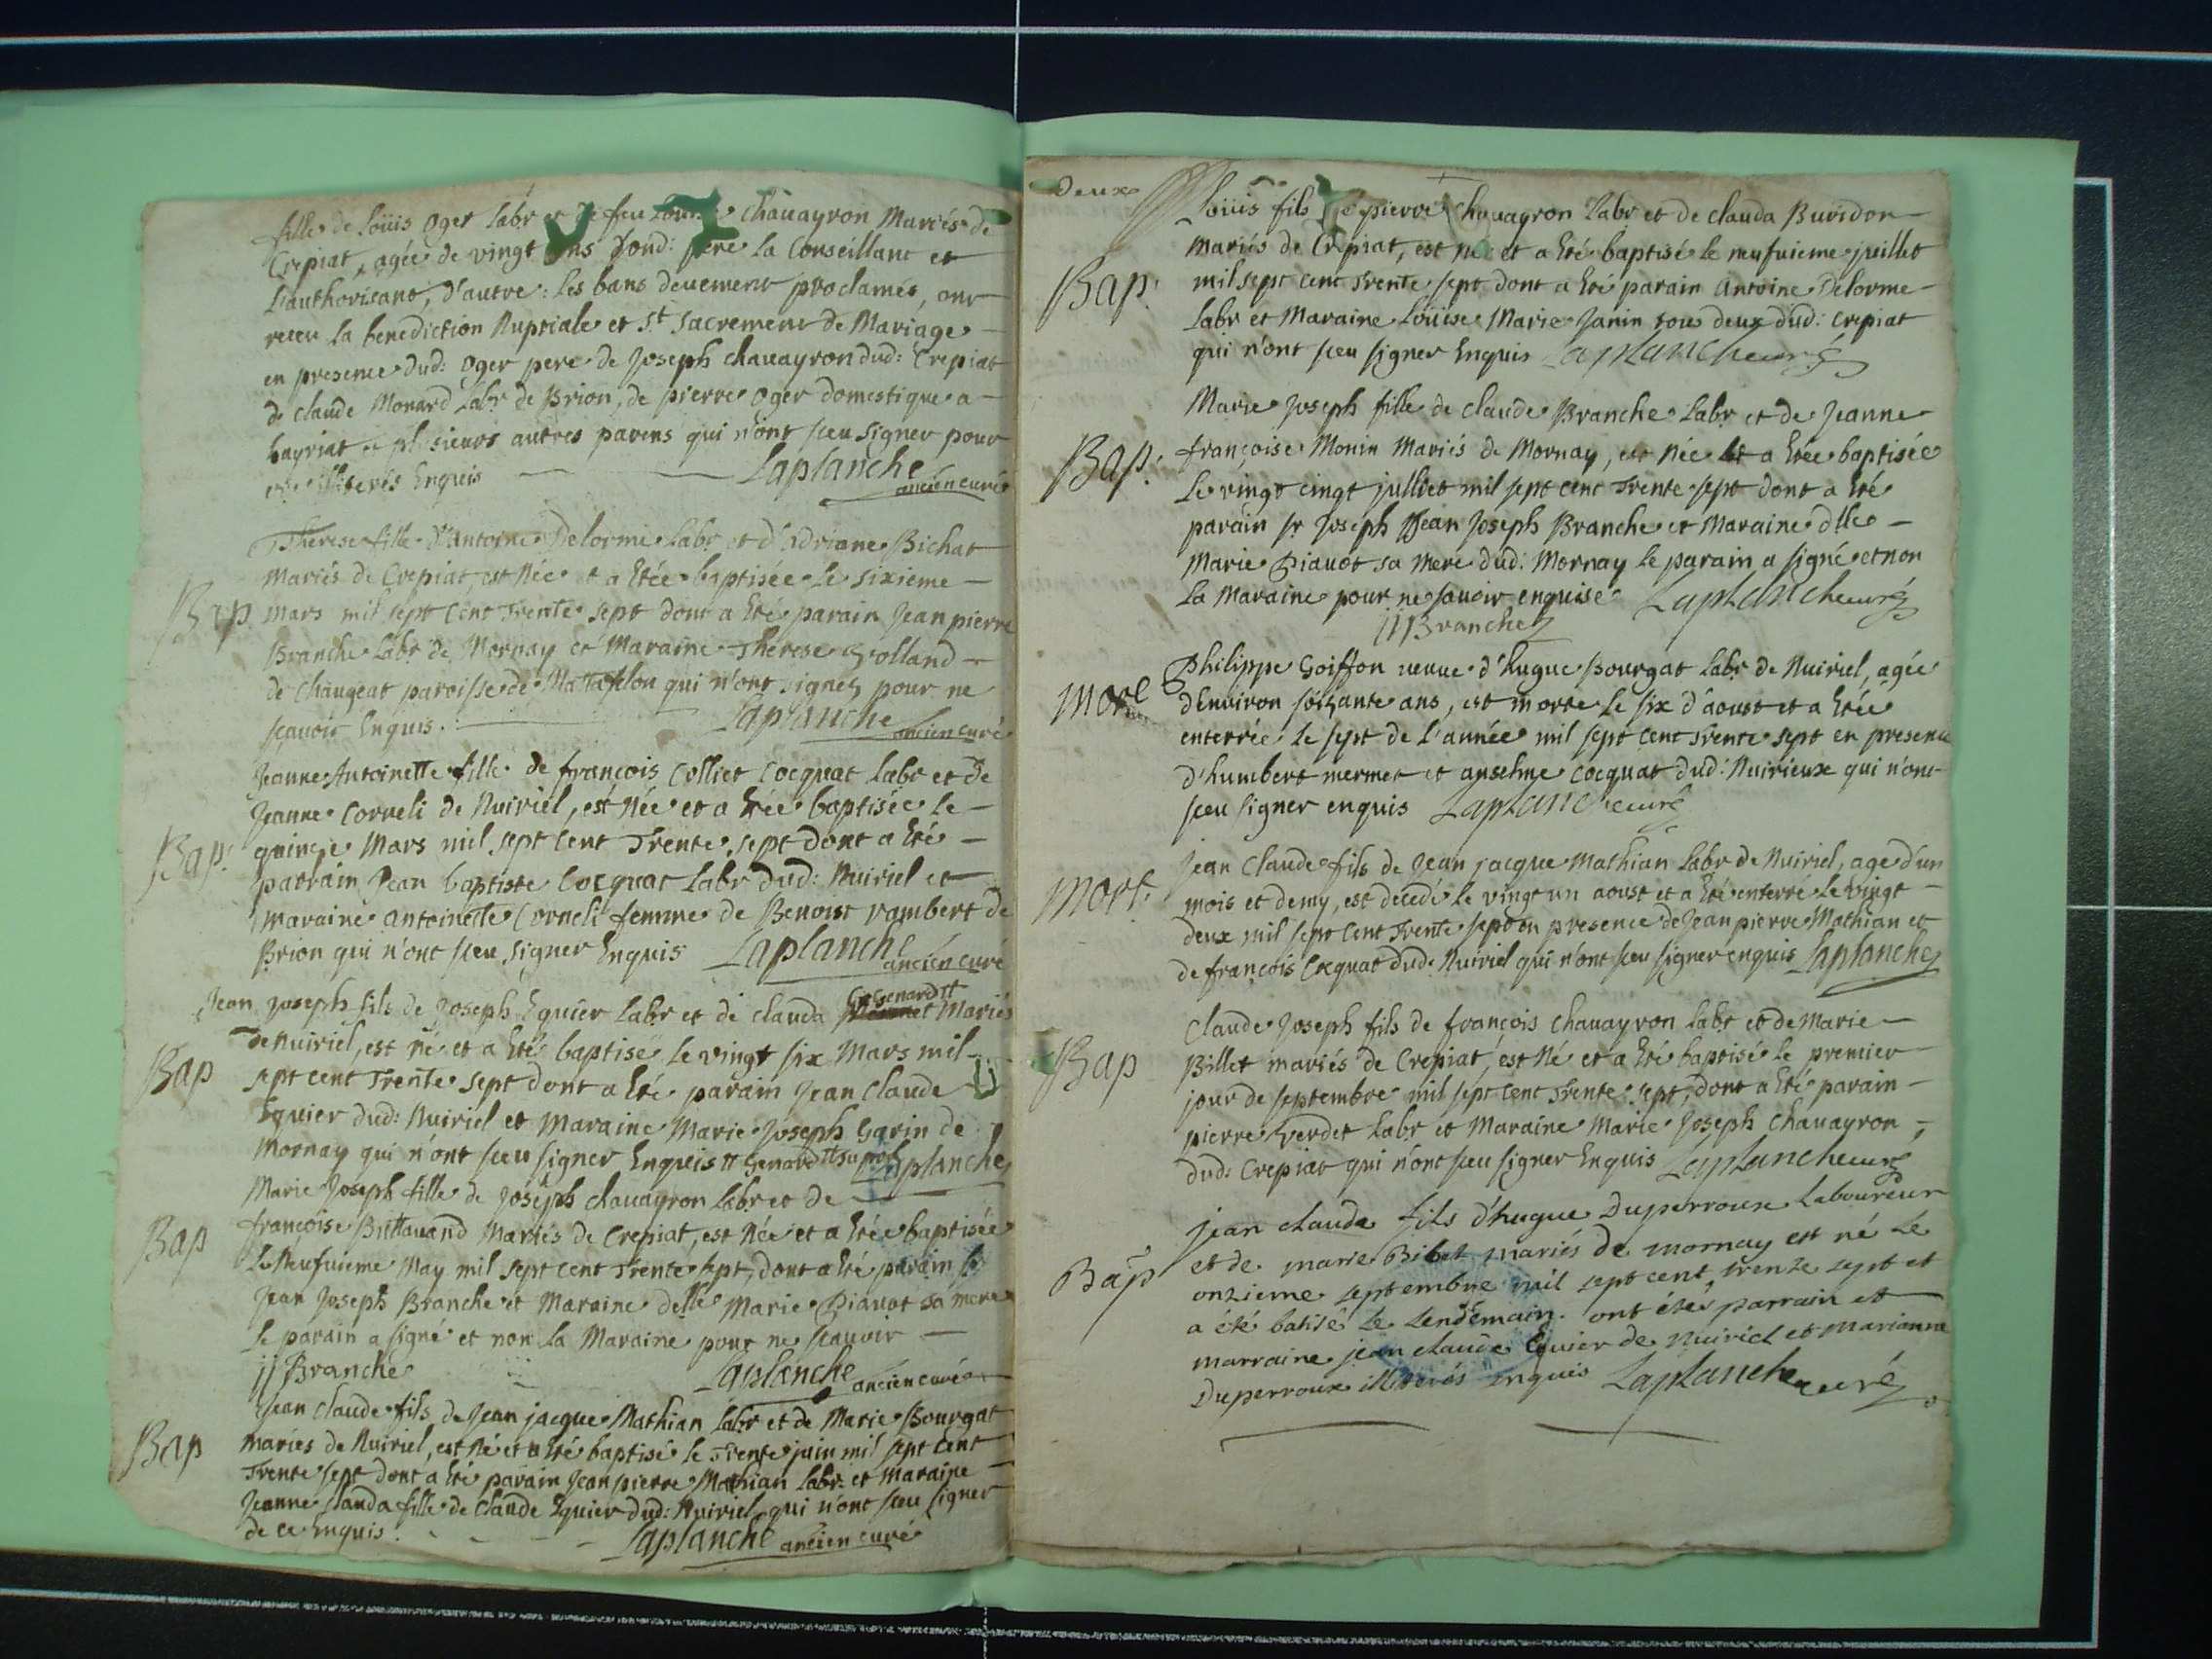 fille de Loüis Oger Labr et de feu Chauayron Mariés de
Crepiat, agée de vingt ans dond: pere la Conseillant et
L'authorisant, d'autre: Les bans deuement proclamés, ont
receu la benediction Nuptiale et St Sacrement de Mariage
en presence dud: Oger pere de Joseph chauayron dud: Crepiat
de claude Monard Labr de Brion, de pierre Oger domestique a
bayriat et plusieurs autres parens qui n'ont sceu signer pour
etre illiterés Enquis Laplanche
ancien curé
Therese fille d'Antoine Delorme Labr et d'Adriane Bichat
Mariés de Crepiat, est Née et a Etée baptisée Le sixieme
Bap
Mars mil sept Cent Trente sept dont a Eté parain Jean pierre
Branche Labr de Mornay et Maraine Therese Volland
de Chaugeat paroisse de Mattafelon qui n'ont signés pour ne
sçauoir Enquis. Laplanche
ancien curé
Jeanne Antoinette fille de françois Colliet Cocquat Labr et de
Jeanne Corneli de Nuiriel, est Née et a Etée baptisée Le
Bap:
quinze Mars mil sept Cent Trente sept dont a Eté
parrain Jean baptiste Cocquat Labr dud: Nuiriel et
Maraine Antoinette Corneli femme de Benoist rambert de
Brion qui n'ont sceu signer Enquis Laplanche
ancien curé
Jean Joseph fils de Joseph Equier Labr et de Clauda Mariés
de Nuiriel, est Né et a Eté baptisé Le vingt six Mars mil
Bap
sept cent Trente sept dont a Eté parain Jean Claude
Equier dud: Nuiriel et Maraine Marie Joseph Garin de
Mornay qui n'ont sceu signer Enquis Laplanche
Marie Joseph fille de Joseph chauayron Labr et de
Bap
françoise Brittauand Mariés de Crepiat, est Née et a Etée baptisée
Le Neufuieme May mil sept cent Trente sept, dont a Eté parain Sr
Jean Joseph Branche et Maraine delle Marie Piauat sa mere
Le parain a signé et non La Maraine pour ne sçauoir
JJ Branche Laplanche ancien curé
Jean Claude fils de Jean jacque Mathian Labr et de Marie Bourgat
Bap
Mariés de Nuiriel, est Né et a Eté baptisé Le Trente juin mil sept cent
Trente sept dont a Eté parain Jean pierre Mathian Labr et Maraine
Jeanne Clauda fille de Claude Equier dud: Nuiriel, qui n'ont sceu signer
de ce Enquis. Laplanche ancien curé
Deux
Loüis fils de pierre Chauayron Labr et de clauda Buridon
Mariés de Crepiat, est né et a Eté baptisé Le neufuieme juillet
Bap:
mil sept cent Trente sept dont a Eté parain Antoine Delorme
Labr et Maraine Loüise Marie Janin tous deux dud: Crepiat
qui n'ont sceu signer Enquis Laplanche curé
Marie Joseph fille de Claude Branche Labr et de Jeanne
Bap:
françoise Monin Mariés de Mornay, est Née et a Etée baptisée
Le vingt cinqt julliet mil sept cent Trente sept dont a Eté
parain sr Joseph Jean Joseph Branche et Maraine dlle
Marie Piauot sa Mere dud: Mornay Le parain a signé et non
La Maraine pour ne sauoir enquise Laplanche curé
JJ Branche
Philippe Goiffon ueuue d'hugue Bourgat Labr de Nuiriel, agée
Mort
d'Enuiron soizante ans, est morte Le six d'aoust et a Etée
enterrée Le sept de l'année mil sept cent Trente sept en presence
d'humbert mermet et anselme Cocquat dud: Nuirieux qui n'ont
sceu signer enquis Laplanche curé
Jean Claude fils de Jean jacque Mathian Labr de Nuiriel, age d'un
Mort.
mois et demy, est decedé Le vingt un aoust et a Eté enterré Le vingt
deux mil sept Cent Trente sept en presence de Jean pierre Mathian et
de françois Cocquat dud. Nuiriel qui n'ont sceu signer enquis Laplanche
Claude Joseph fils de françois Chauayron Labr et de Marie
Bap
Billet mariés de Crepiat, est Né et a Eté baptisé Le premier
jour de septembre mil sept cent Trente sept, dont a Eté parain
pierre Verdet Labr et Maraine Marie Joseph Chauayron
dud: Crepiat qui n'ont sceu signer Enquis Laplanche curé
jean claude fils d'hugue Duperroux Laboureur
et de marie Bilet mariés de mornay est né Le
Bap
onzieme septembre mil sept cent trente sept et
a été batisé Le Lendemain. ont étés parrain et
marraine jean claude Equier de Nuiriel et Marianne
Duperroux illiterés enquis Laplanche curé